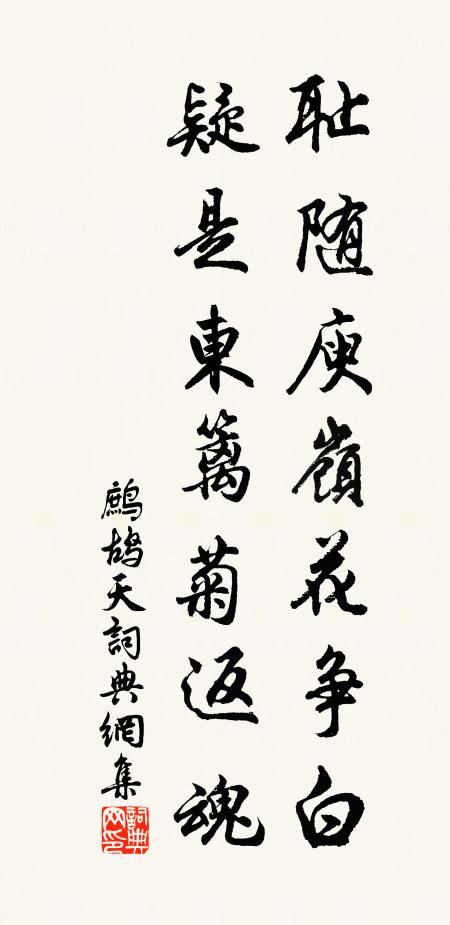 耻随庾嶺花争白
疑是東籬菊返魂
鷓鴣天詞典網集
詞典网印